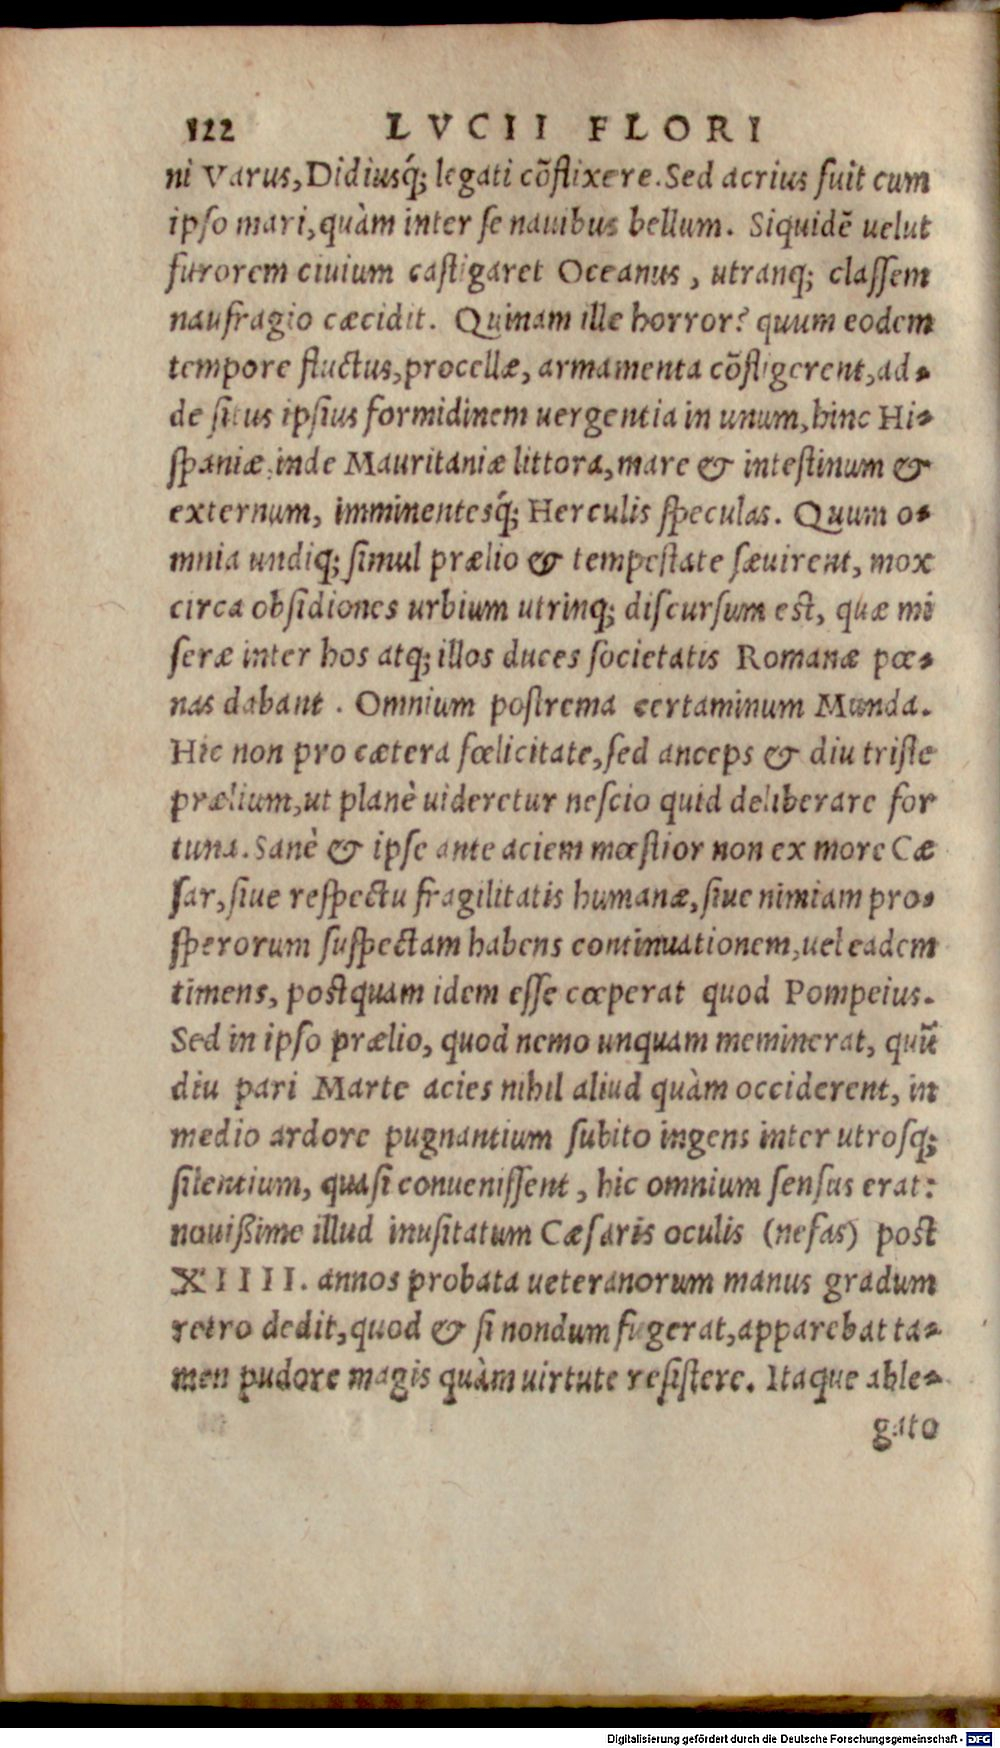 122 LVCII FLORI
ni Varus, Didiusq́; legati cõflixere. Sed acrius fuit cum
ipso mari, quàm inter se nauibus bellum. Siquidẽ uelut
furorem ciuium castigaret Oceanus, utranq; classem
naufragio cæcidit. Quinam ille horror? quum eodem
tempore fluctus, procellæ, armamenta cõfligerent, ad-
de situs ipsius formidinem uergentia in unum, hinc Hi-
spaniæ, inde Mauritaniæ littora, mare & intestinum &
externum, imminentesq́; Herculis speculas. Quum o-
mnia undiq; simul prælio & tempestate sæuirent, mox
circa obsidiones urbium utrinq; discursum est, quæ mi
seræ inter hos atq; illos duces societatis Romanæ pœ-
nas dabant. Omnium postrema certaminum Munda.
Hic non pro cætera fœlicitate, sed anceps & diu triste
prælium, ut planè uideretur nescio quid deliberare for
tuna. Sanè & ipse ante aciem mœstior non ex more Cæ
sar, siue respectu fragilitatis humanæ, siue nimiam pro-
sperorum suspectam habens continuationem, uel eadem
timens, postquam idem esse cœperat quod Pompeius.
Sed in ipso prælio, quod nemo unquam meminerat, quũ
diu pari Marte acies nihil aliud quàm occiderent, in
medio ardore pugnantium subito ingens inter utrosq;
silentium, quasi conuenissent, hic omnium sensus erat:
nouißime illud inusitatum Cæsaris oculis (nefas) post
XIIII. annos probata ueteranorum manus gradum
retro dedit, quod & si nondum fugerat, apparebat ta-
men pudore magis quàm uirtute resistere. Itaque able-
gato
Digitalisierung gefördert durch die Deutsche Forschungsgemeinschaft - DFG